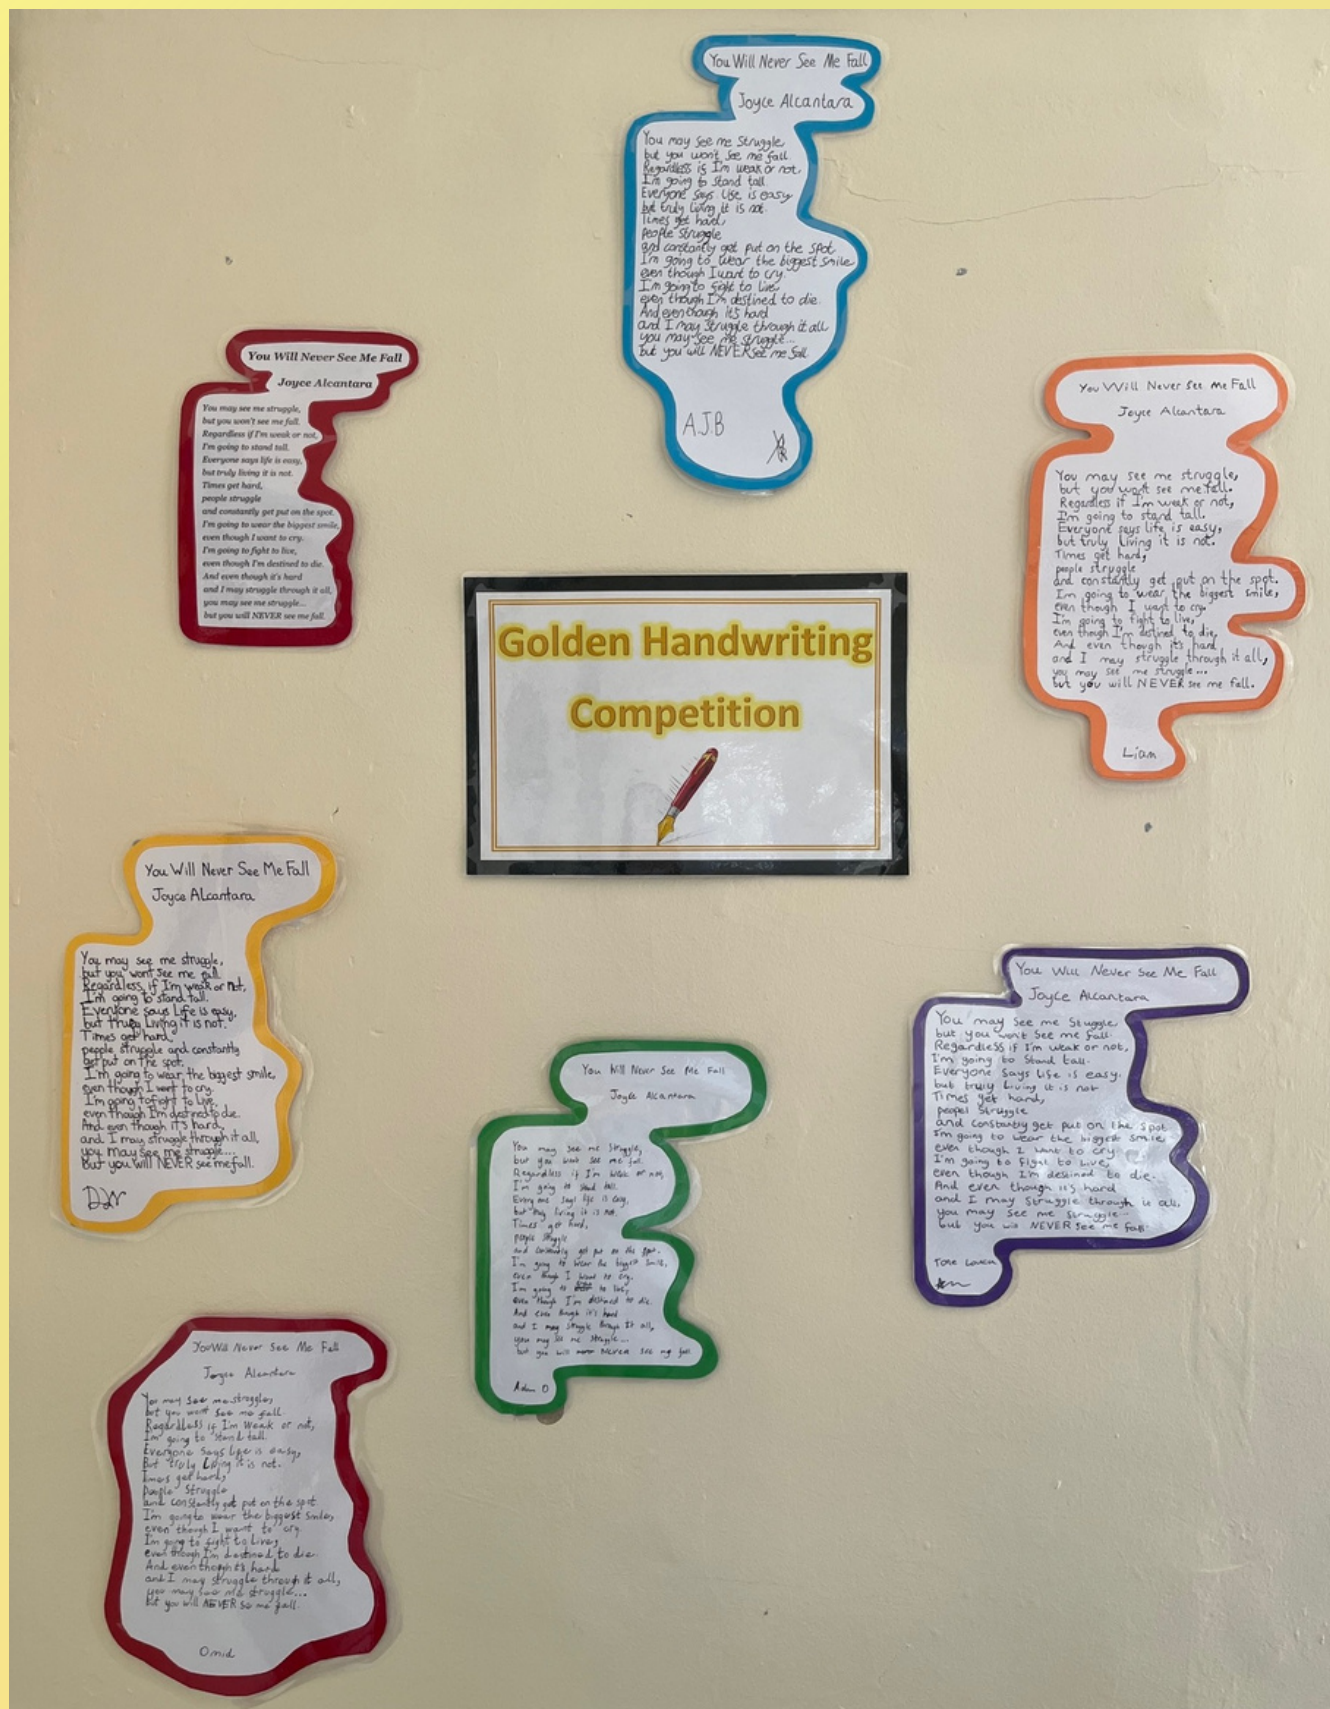 You Will Never See Me Fall
Joyce Alcantara
You may see me Struggle
but you won't see me fall.
Regardless if I'm weak or not,
I'm going to Stand tall.
Everyone says Life is easy
but truly living it is not.
Times get hard,
people struggle
and constantly get put on the spot
I'm going to wear the biggest smile
even though I want to cry.
I'm going to fight to live
even though I'm destined to die.
And even though it's hard
and I may struggle through it all
you may see me struggle...
but you will NEVER see me fall.
A.J.B
You Will Never See Me Fall
Joyce Alcantara
You may see me struggle,
but you won't see me fall.
Regardless if I'm weak or not,
I'm going to stand tall.
Everyone says life is easy,
but truly living it is not.
Times get hard,
people struggle
and constantly get put on the spot.
I'm going to wear the biggest smile,
even though I want to cry.
I'm going to fight to live,
even though I'm destined to die.
And even though it's hard
and I may struggle through it all,
you may see me struggle...
but you will NEVER see me fall.
You Will Never See Me Fall
Joyce Alcantara
You may see me struggle,
but you won't see me fall.
Regardless if I'm weak or not,
I'm going to stand tall.
Everyone says life is easy,
but truly living it is not.
Times get hard,
people struggle
and constantly get put on the spot.
I'm going to wear the biggest smile,
even though I want to cry.
I'm going to fight to live,
even though I'm destined to die.
And even though it's hard
and I may struggle through it all,
you may see me struggle...
but you will NEVER see me fall.
Liam
Golden Handwriting
Competition
You Will Never See Me Fall
Joyce Alcantara
You may see me struggle,
but you wont see me fall.
Regardless if I'm weak or not,
I'm going to stand tall.
Everyone says Life is easy,
but truly Living it is not.
Times get hard,
people struggle and constantly
get put on the spot.
I'm going to wear the biggest smile,
even though I want to cry.
I'm going to fight to live,
even though I'm destined to die.
And even though it's hard,
and I may struggle through it all,
you may see me struggle...
But you will NEVER see me fall.
DW
You Will Never See Me Fall
Joyce Alcantara
You may see me Stuggle
but you won't See me fall.
Regardless if I'm weak or not,
I'm going to Stand tall.
Everyone Says Life is easy.
but truly Living it is not
Times get hard,
peopel Struggle
and constantly get put on the spot
I'm going to wear the biggest smile
even though I want to cry
I'm going to fight to Live,
even though I'm destined to die.
And even though it's hard
and I may Struggle through it all,
you may see me Struggle...
but you will NEVER See me fall
You Will Never See Me Fall
Joyce Alcantara
You may see me Struggle,
but you wont see me fall.
Regardless if I'm weak or not,
I'm going to stand tall.
Everyone says life is easy,
but truly living it is not.
Times get hard,
people struggle
and constantly get put on the spot.
I'm going to wear the biggest smile,
even though I want to cry.
I'm going to to live,
even though I'm destined to die.
And even though it's hard
and I may struggle through it all,
you may see me struggle...
but you will NEVER see my fall
Adam O
You Will Never See Me Fall
Joyce Alcantara
You may see me struggle,
but you wont see me fall
Regardless if I'm Weak or not,
I'm going to stand tall.
Everyone Says life is easy,
But truly Living it is not.
Times get hard,
People Struggle
and constantly get put on the spot
I'm going to wear the biggest smile,
even though I want to cry.
I'm going to fight to Live,
even though I'm destined to die.
And even though it's hard
and I may struggle through it all,
you may see me struggle...
but you will NEVER se me fall.
Omid